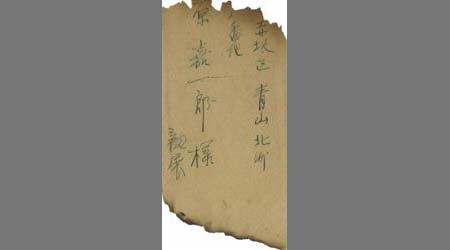 赤坂区青山北町
番地
原嘉一郎様
親展